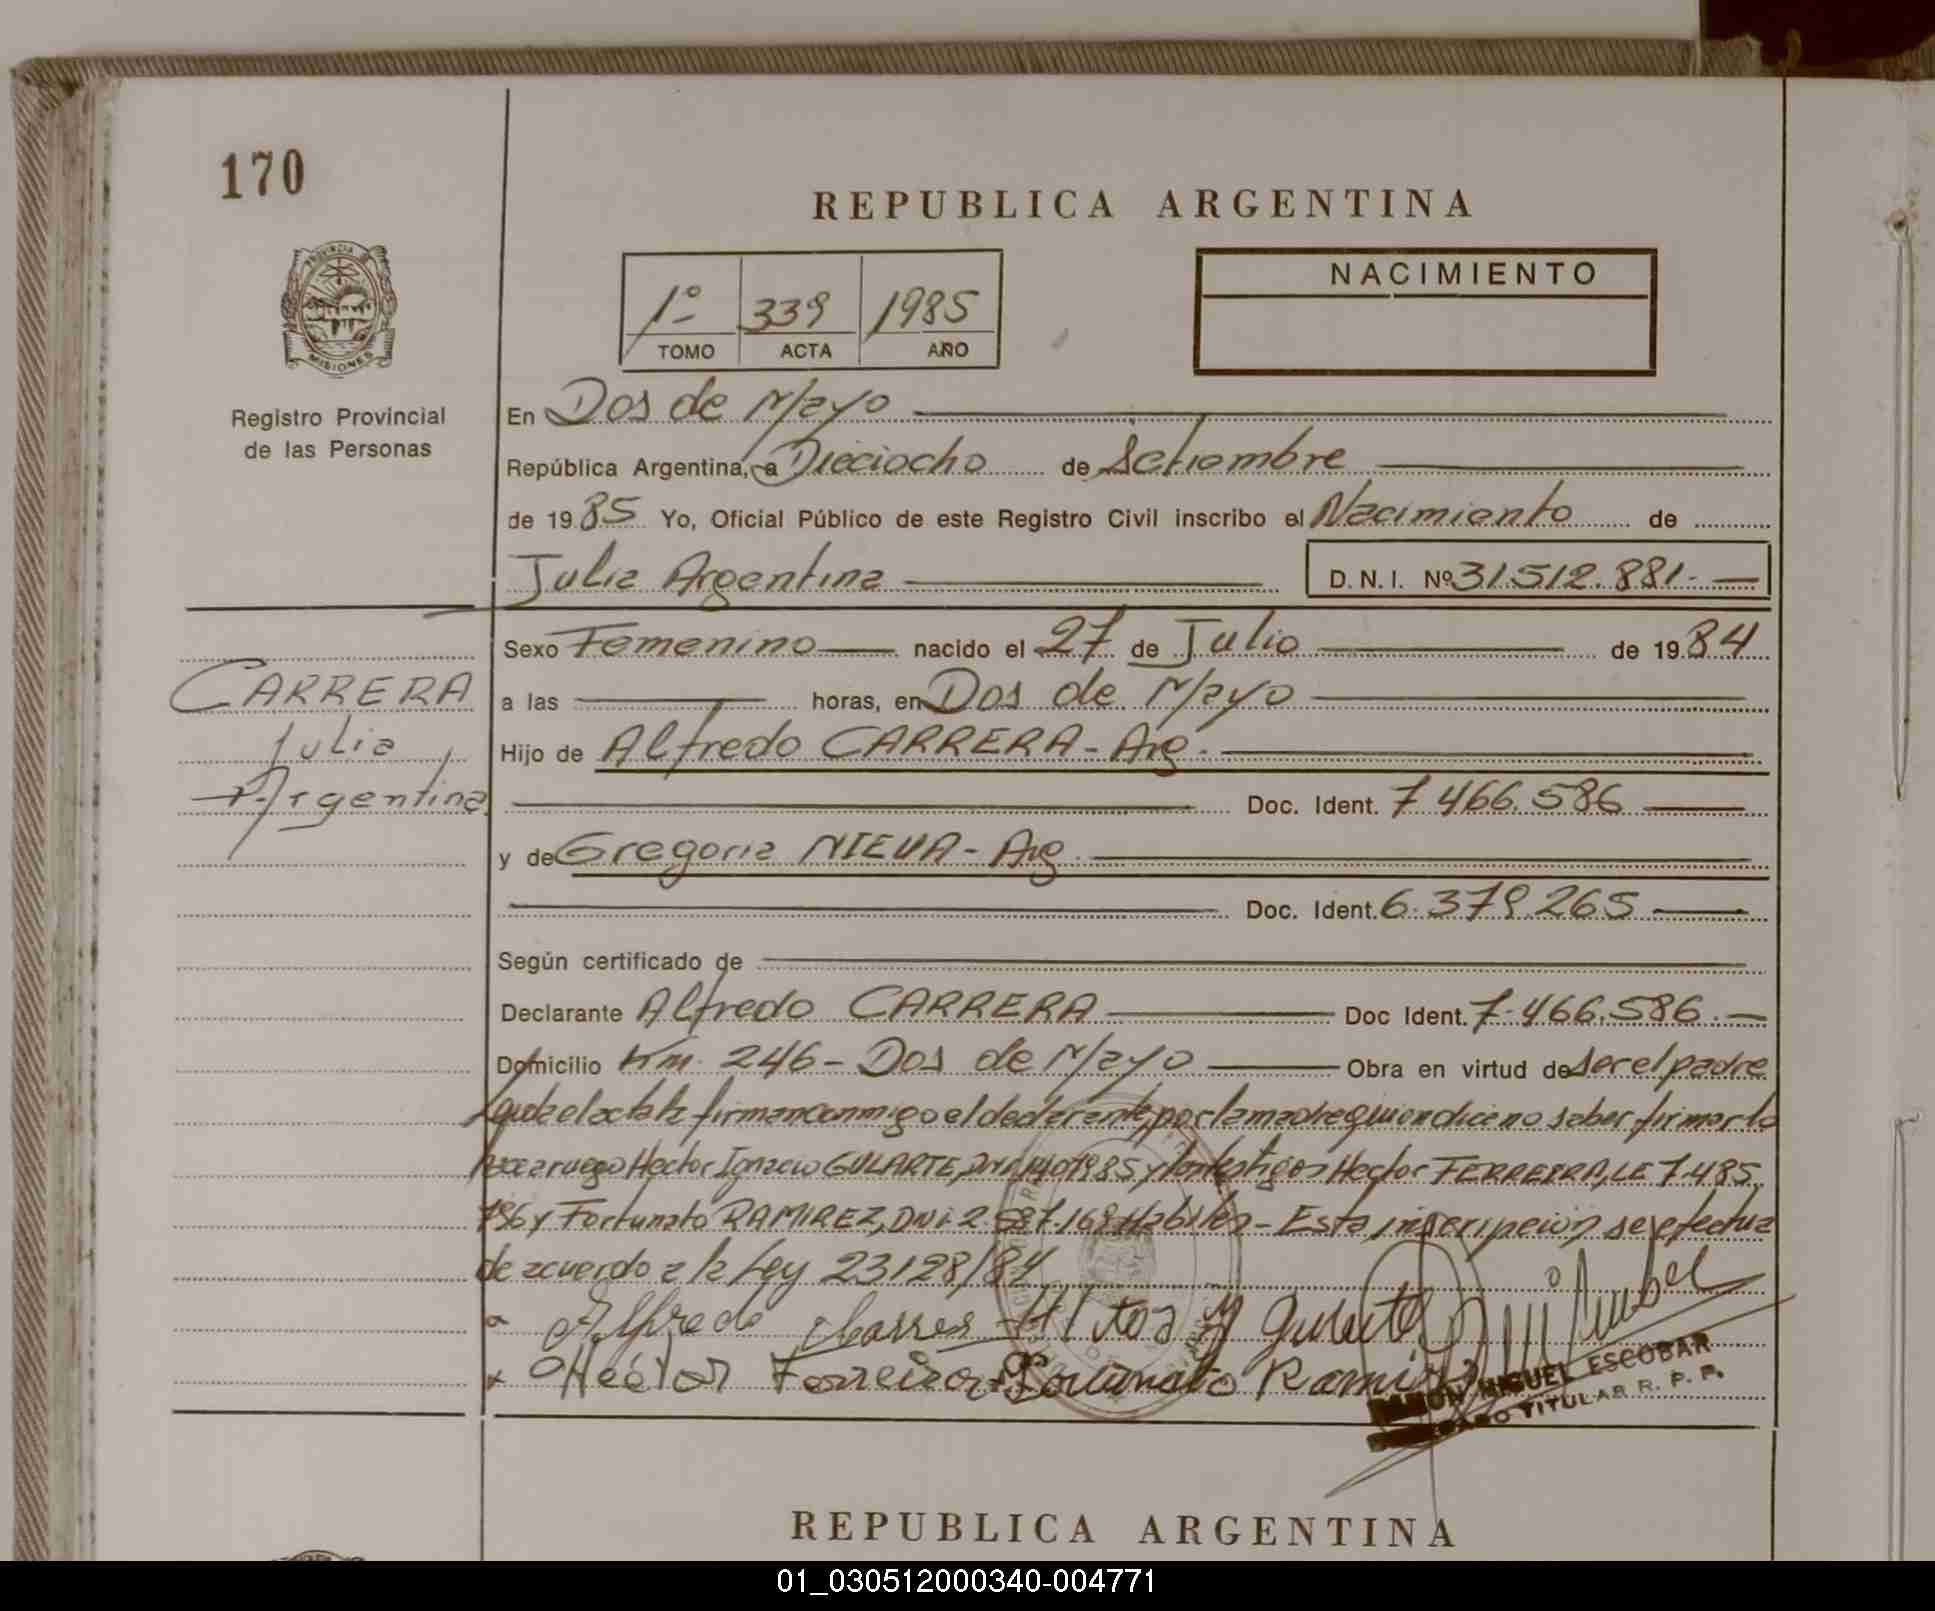 170
REPUBLICA ARGENTINA
PROVINCIA DE
MISIONES
Registro Provincial
de las Personas
1º 339 1985
TOMO ACTA AÑO
NACIMIENTO
En Dos de Mayo
República Argentina, a Dieciocho de Setiembre
de 1985 Yo, Oficial Público de este Registro Civil inscribo el Nacimiento de
Julia Argentina D.N.I. Nº 31.512.881.-
CARRERA
Julia
Argentina
Sexo Femenino nacido el 27 de Julio de 1984
a las horas, en Dos de Mayo
Hijo de Alfredo CARRERA - Arg.
Doc. Ident. 7.466.586
y de Gregoria NIEVA - Arg.
Doc. Ident. 6.379.265
Según certificado de
Declarante Alfredo CARRERA Doc Ident. 7.466.586.-
Domicilio Km. 246 - Dos de Mayo Obra en virtud de ser el padre
Leida el acta la firman conmigo el declarante, por la madre quien dice no saber firmar lo
hace a ruego Hector Ignacio GULARTE, y los testigos Hector FERREIRA, LE 7.485.
796 y Fortunato RAMIREZ, DNI. 2.587.168 Habiles - Esta inscripcion se efectua
de acuerdo a la Ley 23128/84
Alfredo Carrera
Hector Ferreira Fortunato Ramirez
RAMON MIGUEL ESCOBAR
TITULAR R. P. P.
REPUBLICA ARGENTINA
01_030512000340-004771